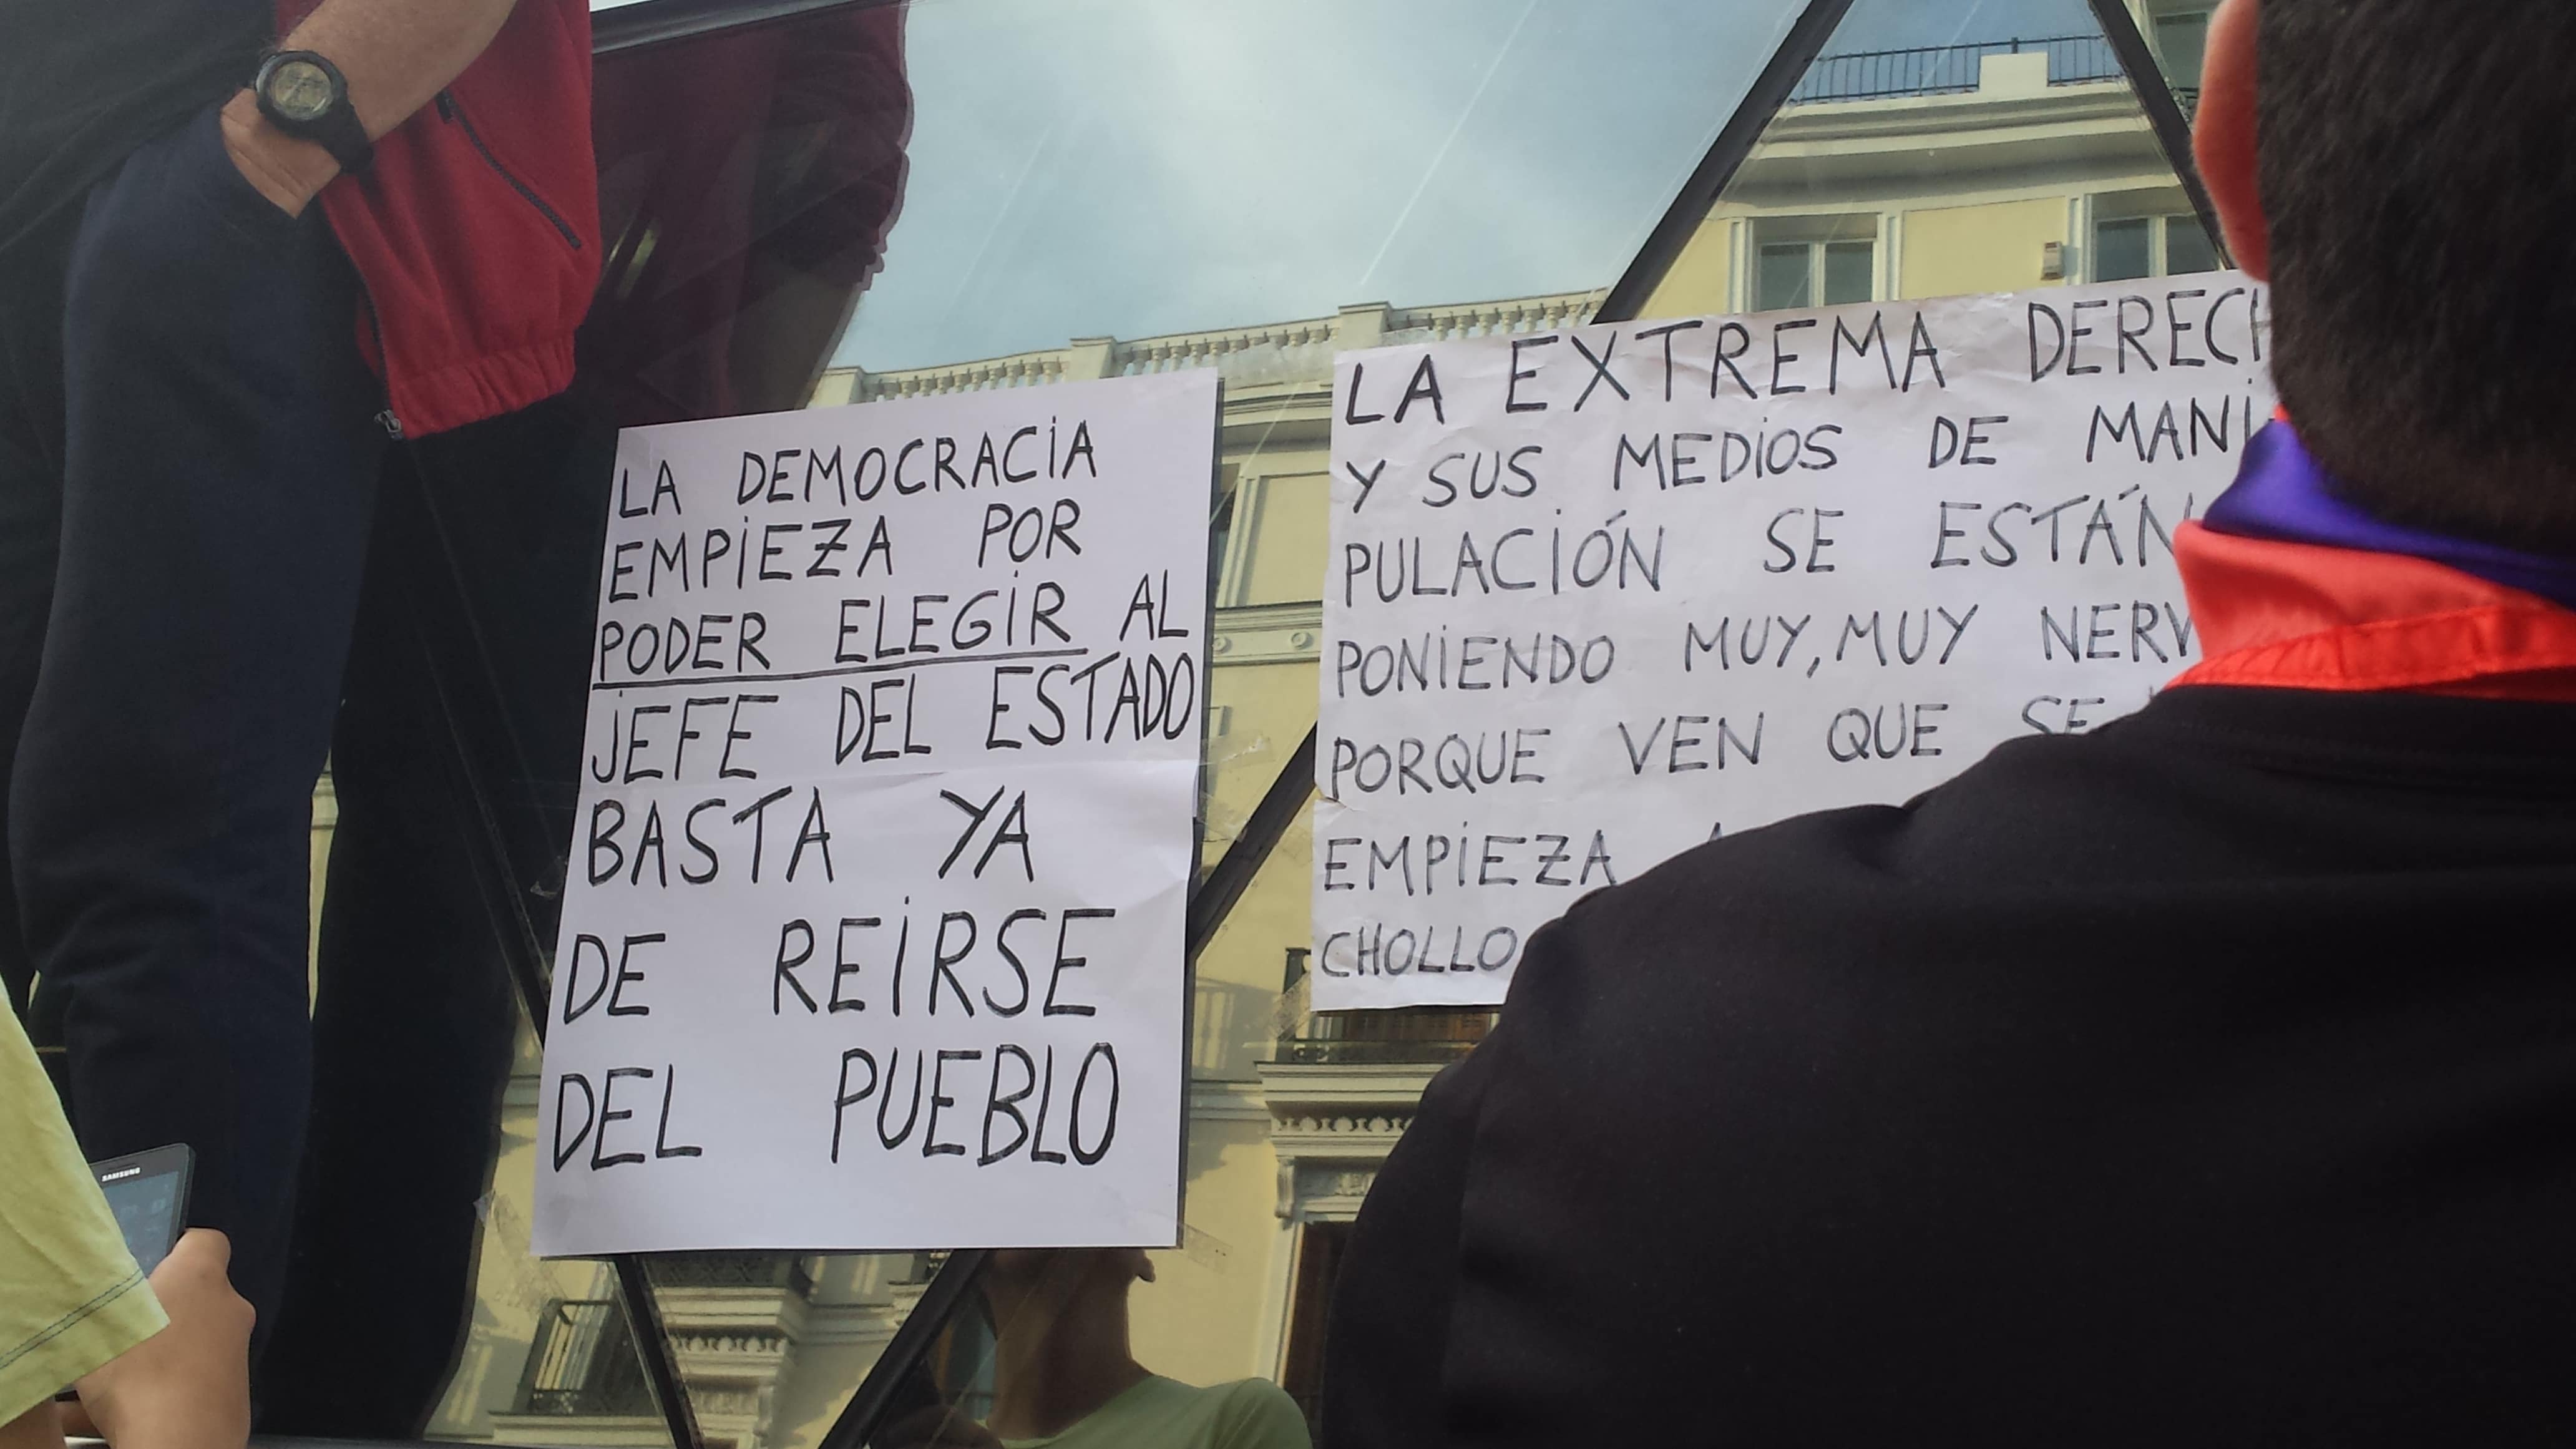 LA DEMOCRACIA
EMPIEZA POR
PODER ELEGIR AL
JEFE DEL ESTADO
BASTA YA
DE REIRSE
DEL PUEBLO
LA EXTREMA
Y SUS MEDIOS DE MANI
PULACIÓN SE ESTÁN
PONIENDO MUY, MUY
PORQUE VEN QUE SE
EMPIEZA
CHOLLO
SAMSUNG